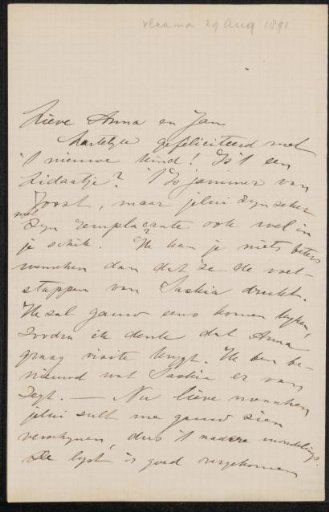 29 Aug 1891
Lieve Anna en Jan
Hartelyk gefeliciteerd met
't nieuwe kind! Is 't een
Aidaatje? 't Is jammer van
Joost, maar jelui zyn zeker
met
zyn remplaçante ook wel in
je schik. Ik kan je niets beters
wenschen dan dat ze de voet-
stappen van Saskia drukt.
Ik zal gauw eens komen kyken,
zoodra ik denke dat Anna
graag visite krygt. Ik ben be-
nieuwd wat Saskia er van
zegt. — Nu lieve menschen
jelui sult me gauw zien
verschynen, dus 't nadere mondeling.
De lyst is goed overgekomen